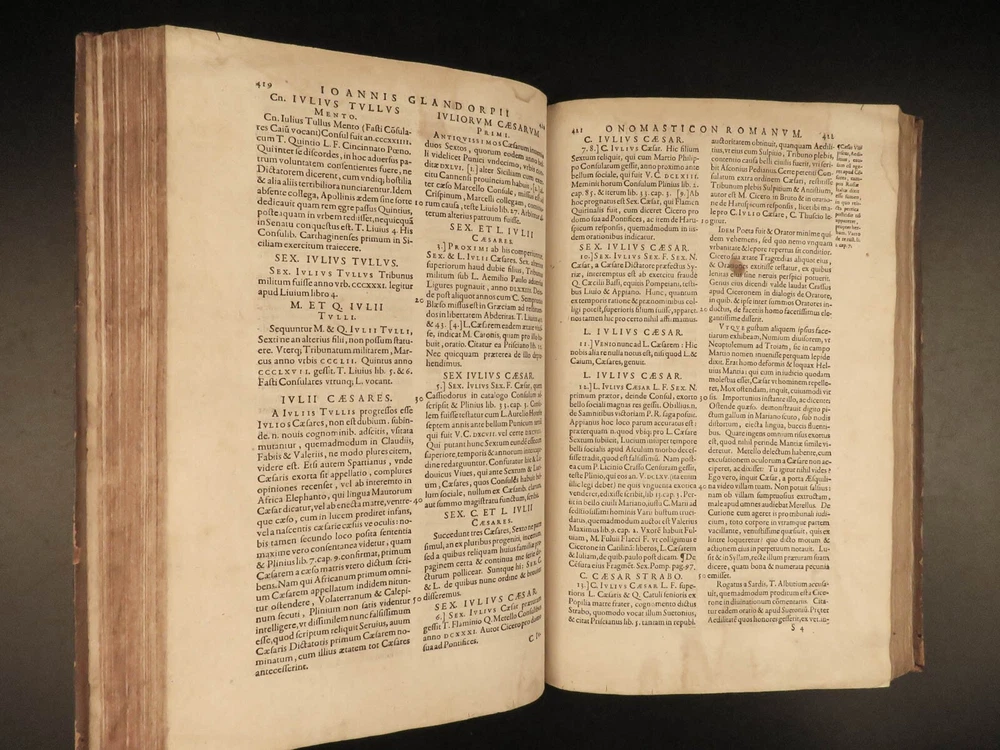 419
IOANNIS GLANDORPII
Cn. IVLIVS TVLLVS
MENTO.
Cn. Iulius Tullus Mento (Fasti Cōsula-
res Caiū vocant) Consul fuit an.CCCXXIIII.
cum T. Quintio L. F. Cincinnato Pœno.
Qui inter se discordes, in hoc aduersus pa-
trum voluntatem consentientes fuere, ne
Dictatorem dicerent, cum vndiq; hostilia
& alia aliis terribiliora nunciarentur. Idem
absente collega, Apollinis ædem sine sorte
dedicauit quam rem egre passus Quintius,
postea quam in vrbem redisset, nequicquā
in Senatu conquestus est. T. Liuius 4. His
Consulib. Carthaginenses primum in Si-
ciliam exercitum traiecere.
SEX. IVLIVS TVLLVS.
SEX. IVLIVS TVLLVS Tribunus
militum fuisse anno vrb. CCCXXXI. legitur
apud Liuium libro 4.
M. ET Q. IVLII
TVLLI.
Sequuntur M. & Q. IVLII TVLLI,
Sexti ne an alterius filii, non possum statu-
ere. Vterq; Tribunatum militarem, Mar-
cus anno vrbis CCCLII. Quintus anno
CCCLXVII. gessit. T. Liuius lib. 5. & 6.
Fasti Consulares vtrunq; L. vocant.
IVLII CÆSARES.
A IVLIIS TVLLIS progressos esse
IVLIOS Cæsares, non est dubium. subin-
de. n. nouis cognominib. adscitis, vsitata
mutantur, quemadmodum in Claudiis,
Fabiis & Valeriis, ne modo plures citem,
videre est. Etsi autem Spartianus, vnde
Cæsaris exorta sit appellatio, complures
opiniones recenset, vel ab interemto in
Africa Elephanto, qui lingua Maurorum
Cæsar dicatur, vel ab enecta matre, ventre-
que cæso, cum in lucem prodiret infans,
vel a nascentis cæsarie cæsiisve oculis: no-
bis tamen secundo loco posita sententia
maxime vero consentanea videtur, quam
& Plinius lib. 7. cap. 9. confirmat, primum
Cæsarem a cæso matris vtero dictum scri-
bens. Nam qui Africanum primum omni-
um Cæsarem appellatum indidem nitun-
tur ostendere, Volaterranum & Calepi-
num secuti, Plinium non satis videntur
intelligere, vt dissimilem nunc falsissimum
esse, quod scriptum reliquit Seruius, auum
Cæsaris Dictatoris primum Cæsarem no-
minatum, cum illius ætatem tot Cæsares
antecesserint.
IVLIORVM CÆSARVM
PRIMI.
ANTIQVISSIMOS Cæsarum inuenio
duos Sextos, quorum eodem anno bel-
li videlicet Punici vndecimo, vrbis con-
ditæ DXLVI. [1.] alter Siciliam cum exer-
citu Cannensi prouinciam habuit, [2.] al-
ter cæso Marcello Consule, missus est ad
Crispinum, Marcelli collegam, consulto-
rum causa, teste Liuio lib. 27. Arbitror &
10
SEX. ET L. IVLII
CÆSARES.
3.] PROXIMI ab his comperiuntur
Sex. & L. Iulii Cæsares. Sex. alterius
superiorum haud dubie filius, Tribunus
militum sub L. Aemilio Paulo aduersus
Ligures pugnauit, anno DLXXIII. Dein-
de post aliquot annos cum C. Sempronio
20
Blæso missus est in Græciam ad restituen-
dos in libertatem Abderitas. T. Liuius
& 43. [4.] L. Cæsarem eadem ætate vixis-
se, indicat M. Catonis, quam pro illo ha-
buit, oratio. Citatur ea Prisciano lib. 12.
Nec quicquam præterea de illo depre-
hendimus.
SEX IVLIVS CÆSAR.
5.] SEX. IVLIVS SEX. F. Cæsar, quem
30
Cassiodorus in catalogo Consulum ad-
scripsit & Plinius lib. 33. cap. 3. Consu-
lem fuisse testatur cum L. Aurelio Horeste
septem annis ante bellum Punicum tertiū
qui fuit V. C. DXCVII. vel certe
Qui putant hunc Sextum eundē esse cum
superiore, temporis & annorum interca-
dine redarguuntur. Confutatur hic & Lu-
douicus Viues, qui ante Sextum & Luci-
um, Cæsares, quos Consules habuit bel-
40
lum sociale, nullum ex Cæsarib. clarum,
aut summo magistratu functum, scribit.
SEX. C. ET L. IVLII
CÆSARES.
Succedunt tres Cæsares, Sexto ne patre
simul, an ex pluribus progeniti, incertum,
sed a quibus reliquam huius familiæ pro-
paginem certa & continua me serie de-
ducturum pollicear. Suntque hi: SEX. C.
& L. de quibus nunc ordine & breuiter
50
disseremus.
SEX. IVLIVS CÆSAR.
6.] SEX. IVLIVS Cæsar præturam
gessit T. Flaminio Q. Metello Consulibus
anno DCXXXI. Autor Cicero pro domo
sua ad Pontifices.
C. IV-
421
ONOMASTICON ROMANVM.
422
C. IVLIVS CÆSAR.
7.8.] C. IVLIVS Cæsar. Hic filium
Sextum reliquit, qui cum Martio Philip-
po Consulatum gessit, anno proximo ante
bellum sociale, qui fuit V. C. DCLXIII.
Meminit horum Consulum Plinius lib. 2.
cap. 85. & iterum lib. 33. cap. 3. [9.] Ab
hoc prognatus est Sex. Cæsar, qui Flamen
Quirinalis fuit, cum diceret Cicero pro
domo sua ad Pontifices, ac item de Haru-
spicum responsis, quemadmodum in iis-
dem orationibus indicatur.
SEX. IVLIVS CÆSAR.
10.] SEX. IVLIVS SEX. F. SEX. N.
Cæsar, a Cæsare Dictatore præfectus Sy-
riæ, interemptus est ab exercitu fraude
Q. Cæcilii Bassi, equitis Pompeiani, testi-
bus Liuio & Appiano. Hunc, quantum
ex temporis ratione & prænominibus col-
ligi potest, superioris filium fuisse, apparet.
nos tamen hic pro certo nihil affirmamus.
L. IVLIVS CÆSAR.
11.] VENIO nunc ad L. Cæsarem: Hic
nobis alia re nulla notus est, nisi quod L. &
Caium, Cæsares, genuit.
L. IVLIVS CÆSAR.
12.] L. IVLIVS CÆSAR L. F. SEX. N.
primum prætor, deinde Consul, exorto
bello sociali magnas res gessit. Obsillius n.
de Samnitibus victoriam P. R. saga posuit.
Appianus hoc loco parum accuratus est:
præterquam n. quod vbiq; pro L. Cæsare
Sextum subiicit, Lucium insuper tempore
belli socialis apud Asculum morbo deces-
sisse tradit, quod est falsissimū. Nam post-
ea cum P. Licinio Crasso Censuram gessit,
teste Plinio, qui eos an. V. DCLXV. (ita enim
illic legi debet) ne quis vnguenta exotica
venderet, edixisse scribit, lib. 13. cap. 3. Per-
iit in bello ciuili Mariano, iussu C. Marii ad
seditiosissimi hominis Varii bustum cruci-
datus, quemadmodum auctor est Valerius
Maximus lib. 9. cap. 2. Vxorē habuit Ful-
uiam, M. Fuluii Flacci F. vt colligimus e
Cicerone in Catilinā: liberos, L. Cæsarem
& Iuliam, de quib. paulo post dicam. ¶ De
Cæsura eius Fragmēt. Sex. Pomp. pag. 97.
C. CÆSAR STRABO.
13.] C. IVLIVS CÆSAR L. F. supe-
rioris L. Cæsaris & Q. Catuli senioris ex
Popilia matre frater, cognomento dictus
Strabo, quomodo vocat illum Suetonius,
& citat Priscianus lib. 3. tantam in republ.
auctoritatem obtinuit, quanquam Aedili-
tius, vt eum cum Sulpitio, Tribuno plebis,
contentio causa belli ciuilis fuerit, vti scri-
bit Asconius Pedianus. Certe petenti Con-
sulatum extra ordinem Cæsari, restitisse
Tribunum plebis Sulpitium & Antistium,
autor est M. Cicero in Bruto & in oratio-
ne de Haruspicum responsis, licet ibi ma-
le pro C. IVLIO Cæsare, C. Thuscio le-
10
gitur.
IDEM Poeta fuit & Orator minime qui-
dem vehemens, sed quo nemo vnquam
vrbanitate & lepore repertus sit conditior.
Cicero sua ætate Tragœdias aliquot eius,
& Orationes extitisse testatur, ex quibus
lenitas eius sine neruis perspici potuerit.
Genus eius dicendi valde laudat Crassus
apud Ciceronem in dialogis de Oratore,
in quib. & ipse inter summos Oratores in-
20
ductus, de facetiis homo facetissimus ele-
gantissime disserit.
VTQVE gustum aliquem ipsius face-
tiarum exhibeam, Numium diuisorem, vt
Neoptolemum ad Troiam, sic in campo
Martio nomen inuenisse perquam lepide
dixit. Erat homo deformis & loquax Hel-
uius Mantia: qui cum in iudicio quodam
molestus esset, Cæsar vt hominem repelle-
ret, Mox ostendam, inquit, cuiusmodi vir
30
sis. Importunius instante illo, ac dicente:
Ostende quæso. demonstrauit digito pi-
ctum gallum in Mariano scuto, sub nodis
distortum, eiecta lingua, buccis fluenti-
bus. Quare ingens omnium risus exortus
est, quod nihil perinde Mantiæ simile vi-
deretur. Metello defectum habente, cum
excusationem oculorum a Cæsare non ac-
ciperet, ac dixisset: Tu igitur nihil vides?
Ego vero, inquit Cæsar, a porta Æsquili-
40
na video villam tuam. Non potuit falsius:
nam ob villam sumptuosius extructam,
male apud omnes audiebat Metellus. De
Curione cum ageret is pronunciandi iudi-
cium, toto corpore in vtramque partem
vacillante, venustissime quæsiuit, quis ex
luntre loqueretur? quo dicto motum &
actionem eius in perpetuum notauit. Lu-
sit & in Syllam, recte illum præturam suam
dicere, quam bona & numerata pecunia
50
emisset.
Rogatus a Sardis, T. Albutium accusa-
uit, quemadmodum proditum est a Cice-
rone in diuinationum cōmentario. Cita-
tur eadem oratio & apud Suetoniū. Præter
Aedilitatē quos honores gesserit, ex vet. in-
S 4